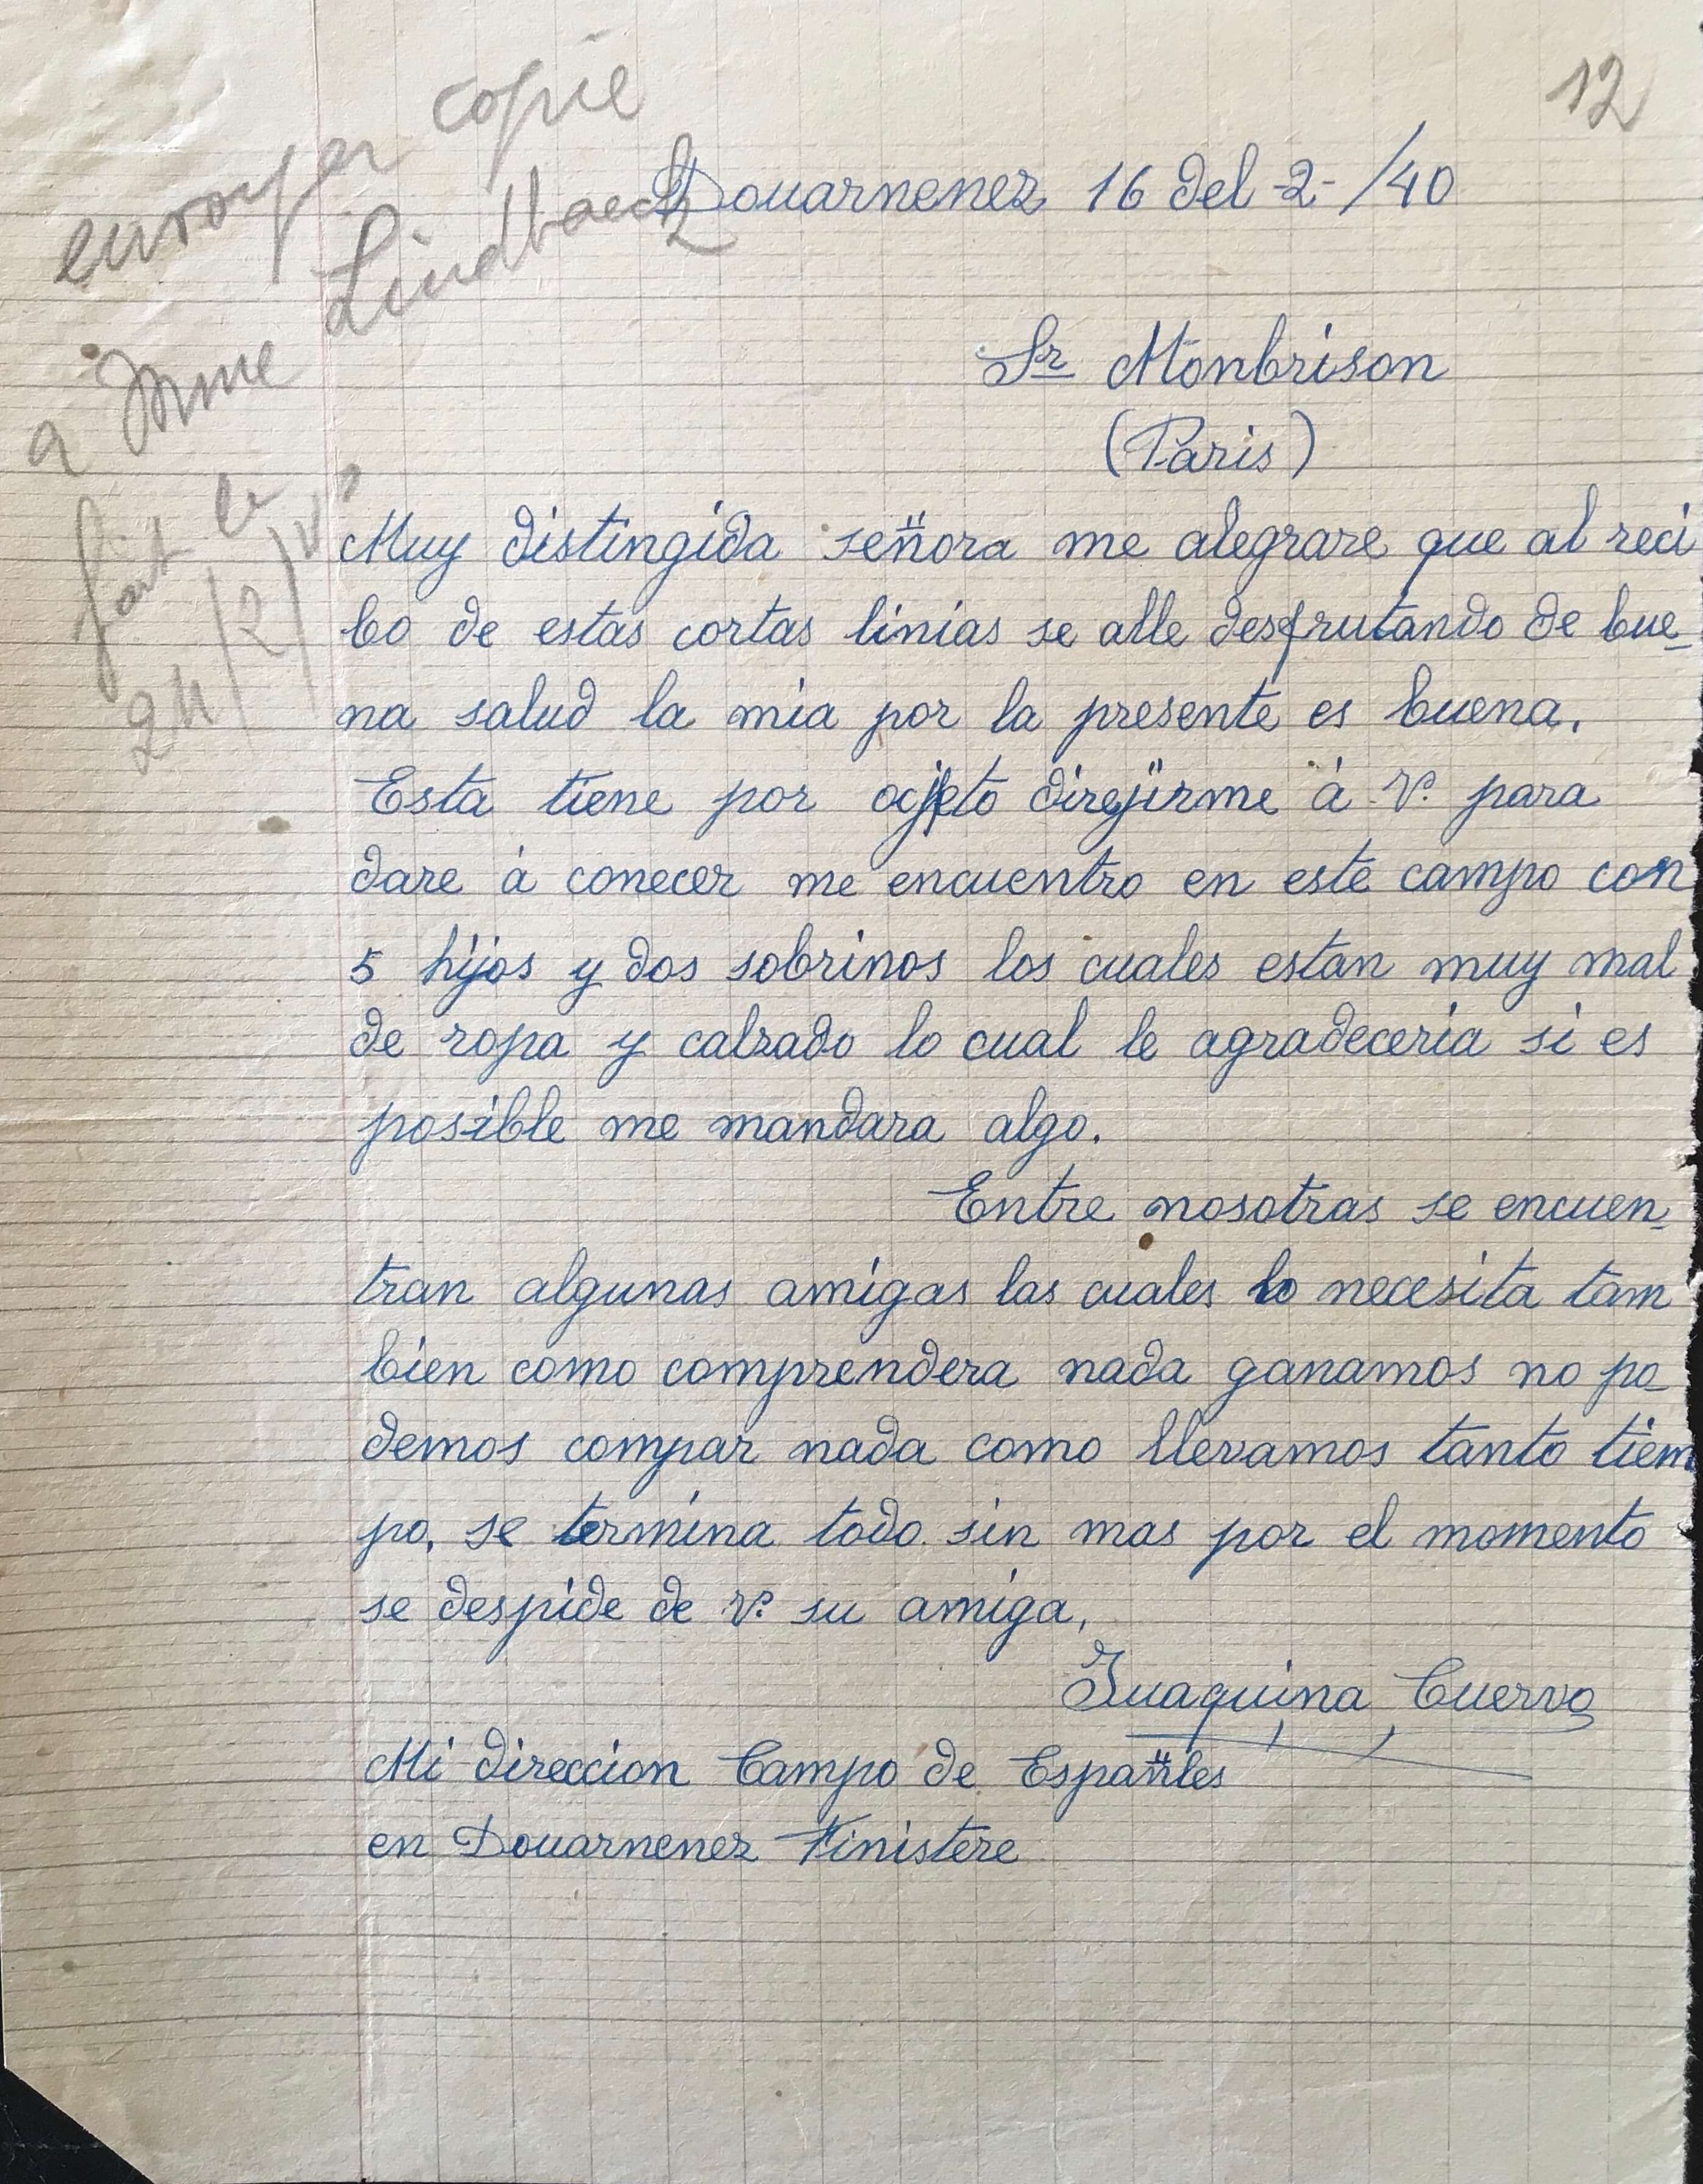 12
envoyer copie
a Mme Lindbaeck
fait le
24/2/40
Douarnenez 16 del -2-/40
Sr Monbrison
(Paris)
Muy distingida señora me alegrare que al reci
bo de estas cortas linias se alle desfrutando de bue-
na salud la mia por la presente es buena.
Esta tiene por ocjeto direjirme á V. para
dare á conecer me encuentro en este campo con
5 hijos y dos sobrinos los cuales estan muy mal
de ropa y calzado lo cual le agradeceria si es
posible me mandara algo.
Entre nosotras se encuen-
tran algunas amigas las cuales lo necesita tam
bien como comprendera nada ganamos no po-
demos compar nada como llevamos tanto tiem
po, se termina todo. sin mas por el momento
se despide de V. su amiga,
Juaquina Cuervo
Mi direccion Campo de Españles
en Douarnenez Finistere